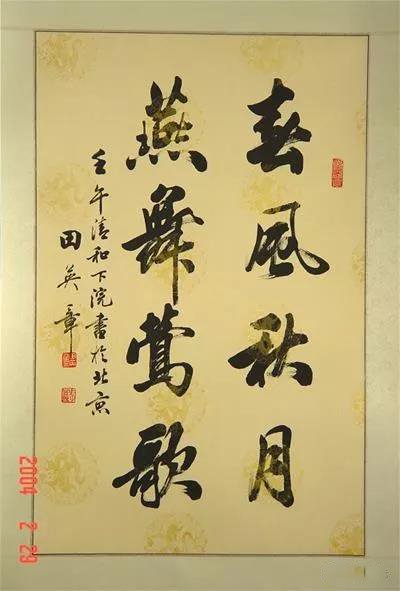 春風秋月
燕舞莺歌
壬午清和下浣書於北京
田英章
2004 2 29